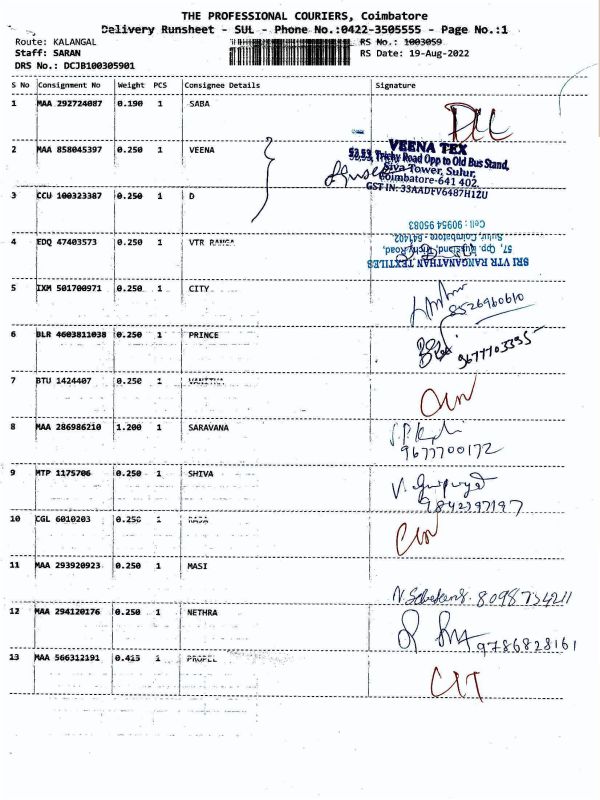 THE PROFESSIONAL COURIERS, Coimbatore
Delivery Runsheet - SUL - Phone No.:0422-3505555 - Page No.:1
Route: KALANGAL RS No.: 1003059
Staff: SARAN RS Date: 19-Aug-2022
DRS No.: DCJB100305901
S No Consignment No Weight PCS Consignee Details Signature
1 MAA 292724087 0.190 1 SABA
2 MAA 858045397 0.250 1 VEENA
VEENA TEX
53,53, Trichy Road Opp to Old Bus Stand,
Siva Tower, Sulur,
Coimbatore-641 402.
GST IN: 33AADFV6487H1ZU
3 CCU 100323387 0.250 1 D
4 EDQ 47403573 0.250 1 VTR RANGA
SRI VTR RANGANATHAN TEXTILES
57, Opp. Busstand, Trichy Road,
Sulur, Coimbatore - 641402
Cell : 90954 95083
5 IXM 501700971 0.250 1 CITY
8526960610
6 BLR 4603811038 0.250 1 PRINCE
9677703395
7 BTU 1424407 0.250 1
8 MAA 286986210 1.200 1 SARAVANA
9677700172
9 MTP 1175706 0.250 1 SHIVA
9842397197
10 CGL 6010203 0.250 1 RAJA
11 MAA 293920923 0.250 1 MASI
8098734211
12 MAA 294120176 0.250 1 NETHRA
9786828161
13 MAA 566312191 0.415 1 PROPEL